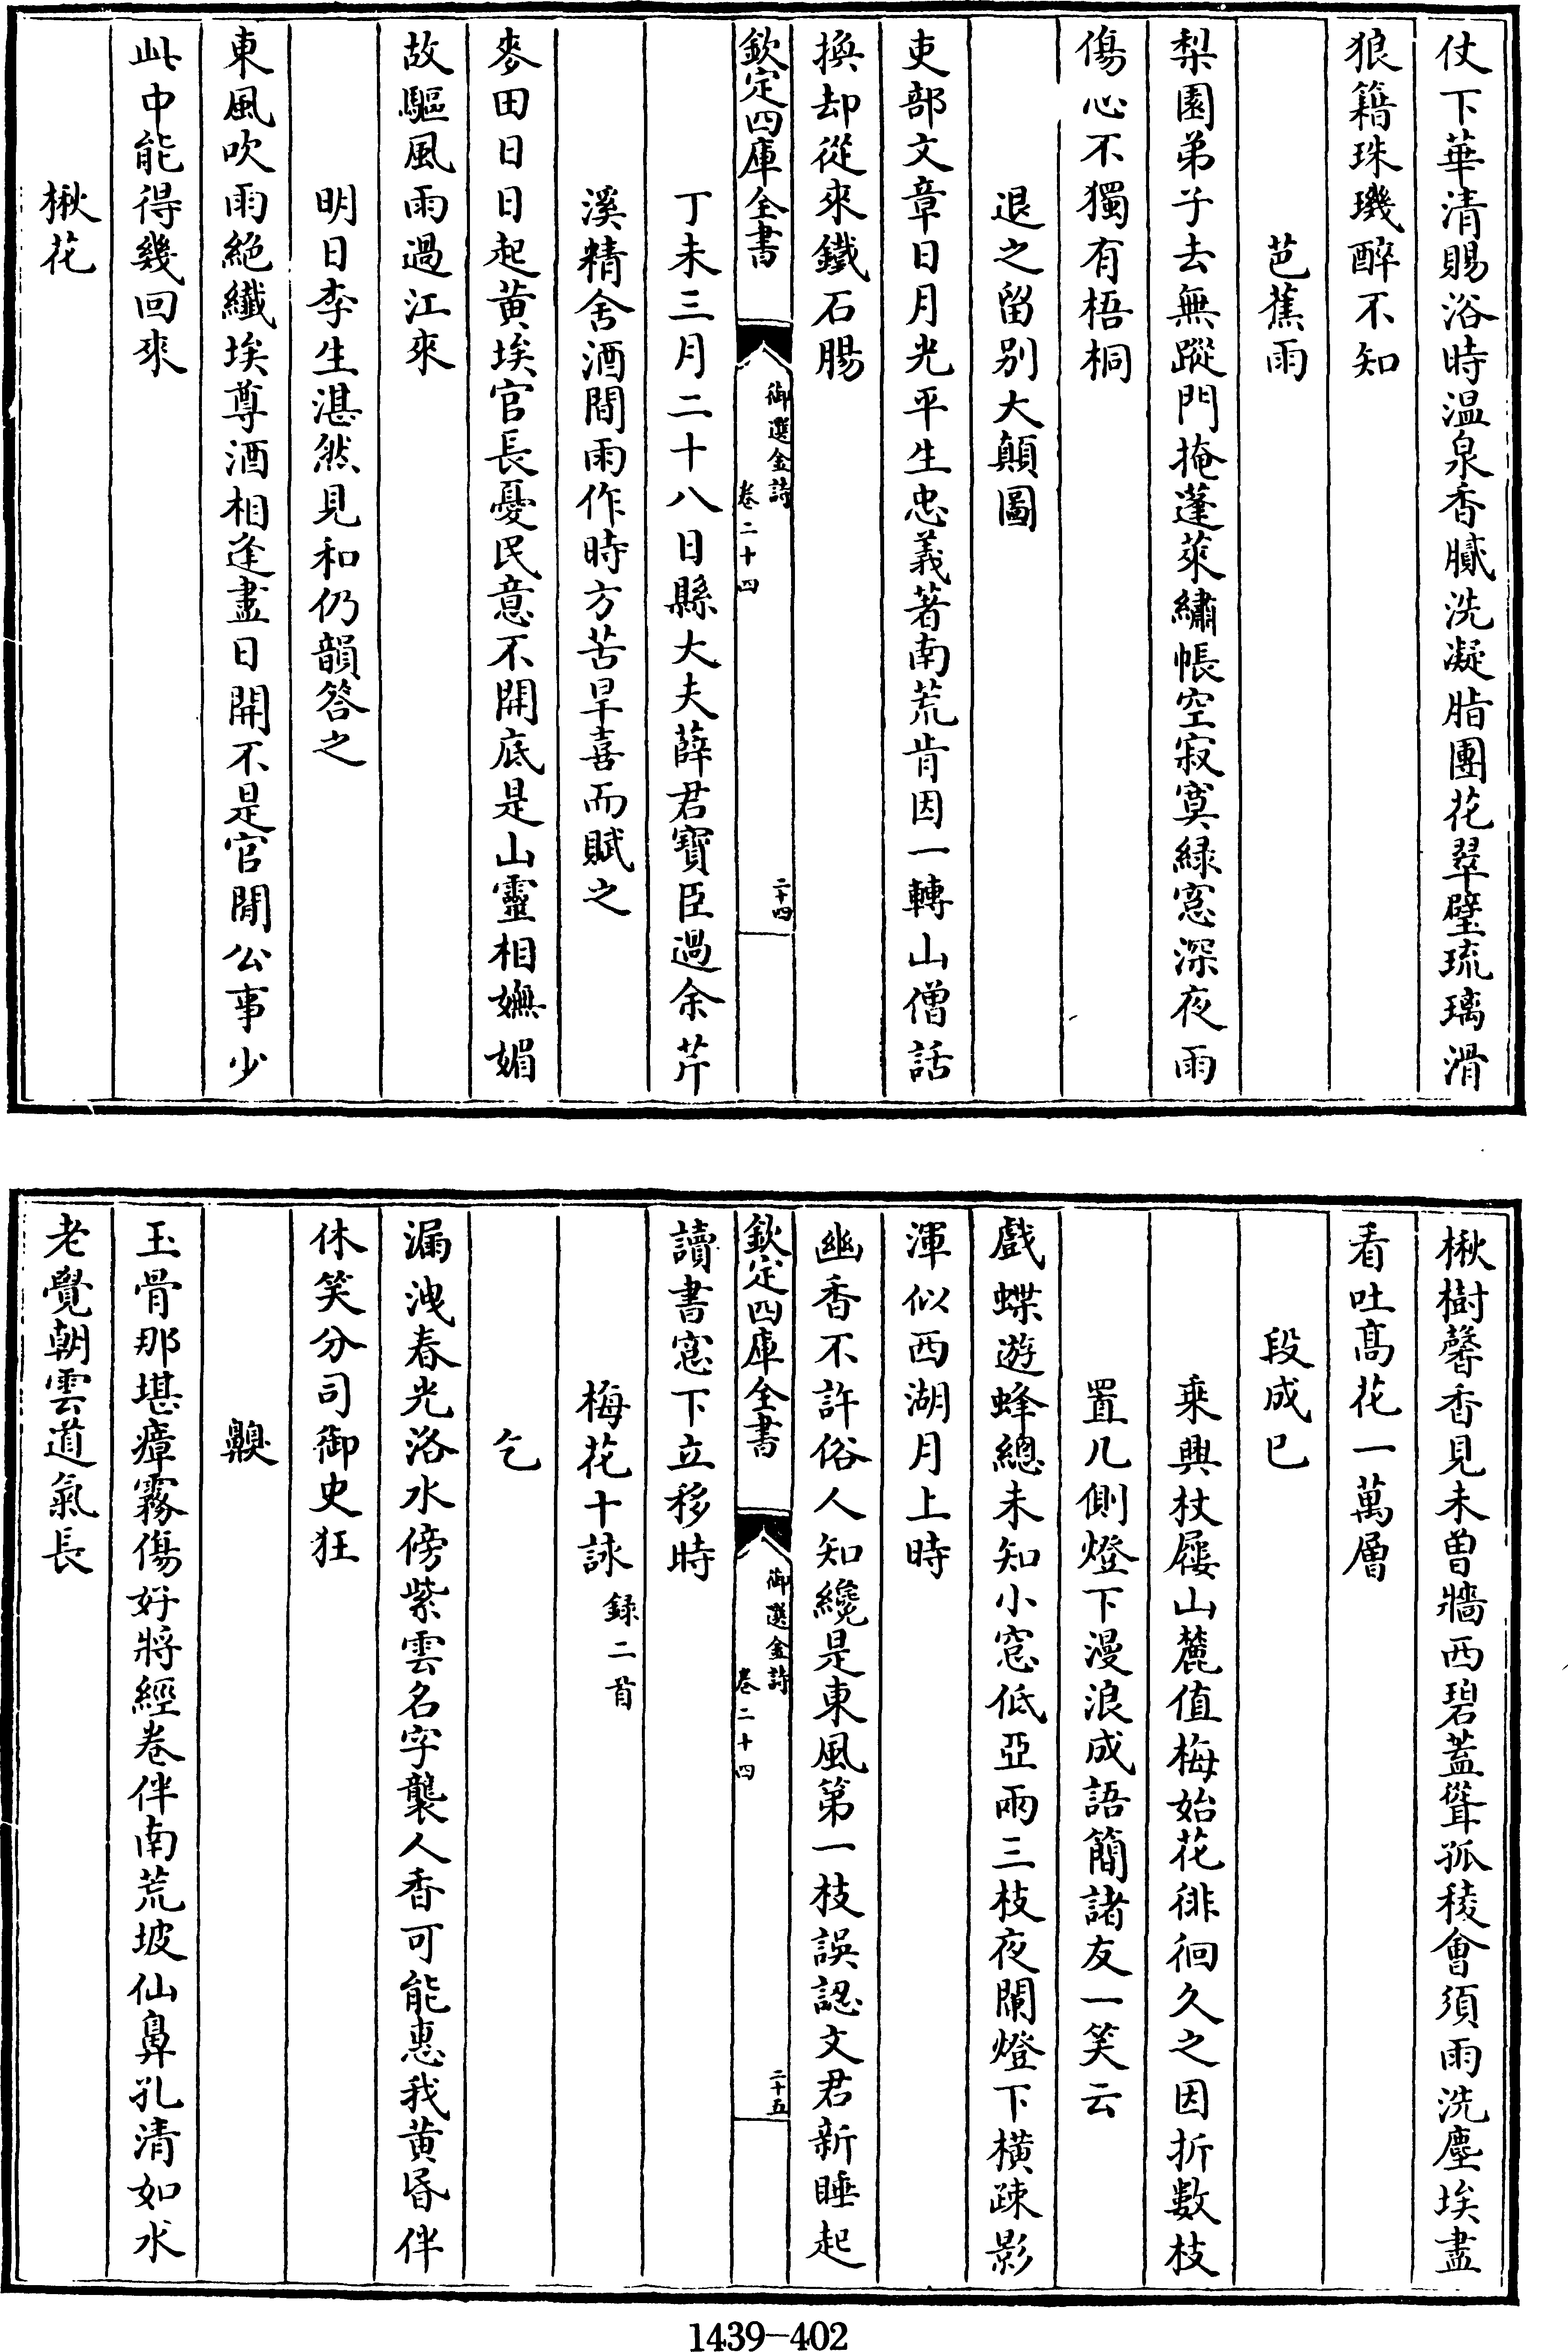 仗下華清賜浴時溫泉香膩洗凝脂團花翠壁琉璃滑
狼籍珠璣醉不知
芭蕉雨
梨園弟子去無蹤門掩蓬萊繡帳空寂寞緑窓深夜雨
傷心不獨有梧桐
退之留别大顛圖
吏部文章日月光平生忠義著南荒肯因一轉山僧話
換却從來鐵石腸
欽定四庫全書
御選金詩
卷二十四
二十四
丁未三月二十八日縣大夫薛君寶臣過余芹
溪精舍酒間雨作時方苦旱喜而賦之
麥田日日起黄埃官長憂民意不開底是山靈相嫵媚
故驅風雨過江來
明日李生湛然見和仍韻答之
東風吹雨絶纖埃尊酒相逢盡日開不是官閒公事少
此中能得幾回來
楸花
楸樹馨香見未曽牆西碧蓋聳孤稜會須雨洗塵埃盡
看吐髙花一萬層
段成巳
乗興杖屨山麓值梅始花徘徊久之因折數枝
置几側燈下漫浪成語簡諸友一笑云
戲蝶遊蜂總未知小窓低亞兩三枝夜闌燈下横疎影
渾似西湖月上時
幽香不許俗人知纔是東風第一枝誤認文君新睡起
欽定四庫全書
御選金詩
卷二十四
二十五
讀書窓下立移時
梅花十詠錄二首
乞
漏洩春光洛水傍紫雲名字襲人香可能惠我黄昏伴
休笑分司御史狂
齅
玉骨那堪瘴霧傷好將經卷伴南荒坡仙鼻孔清如水
老覺朝雲道氣長
1439-402